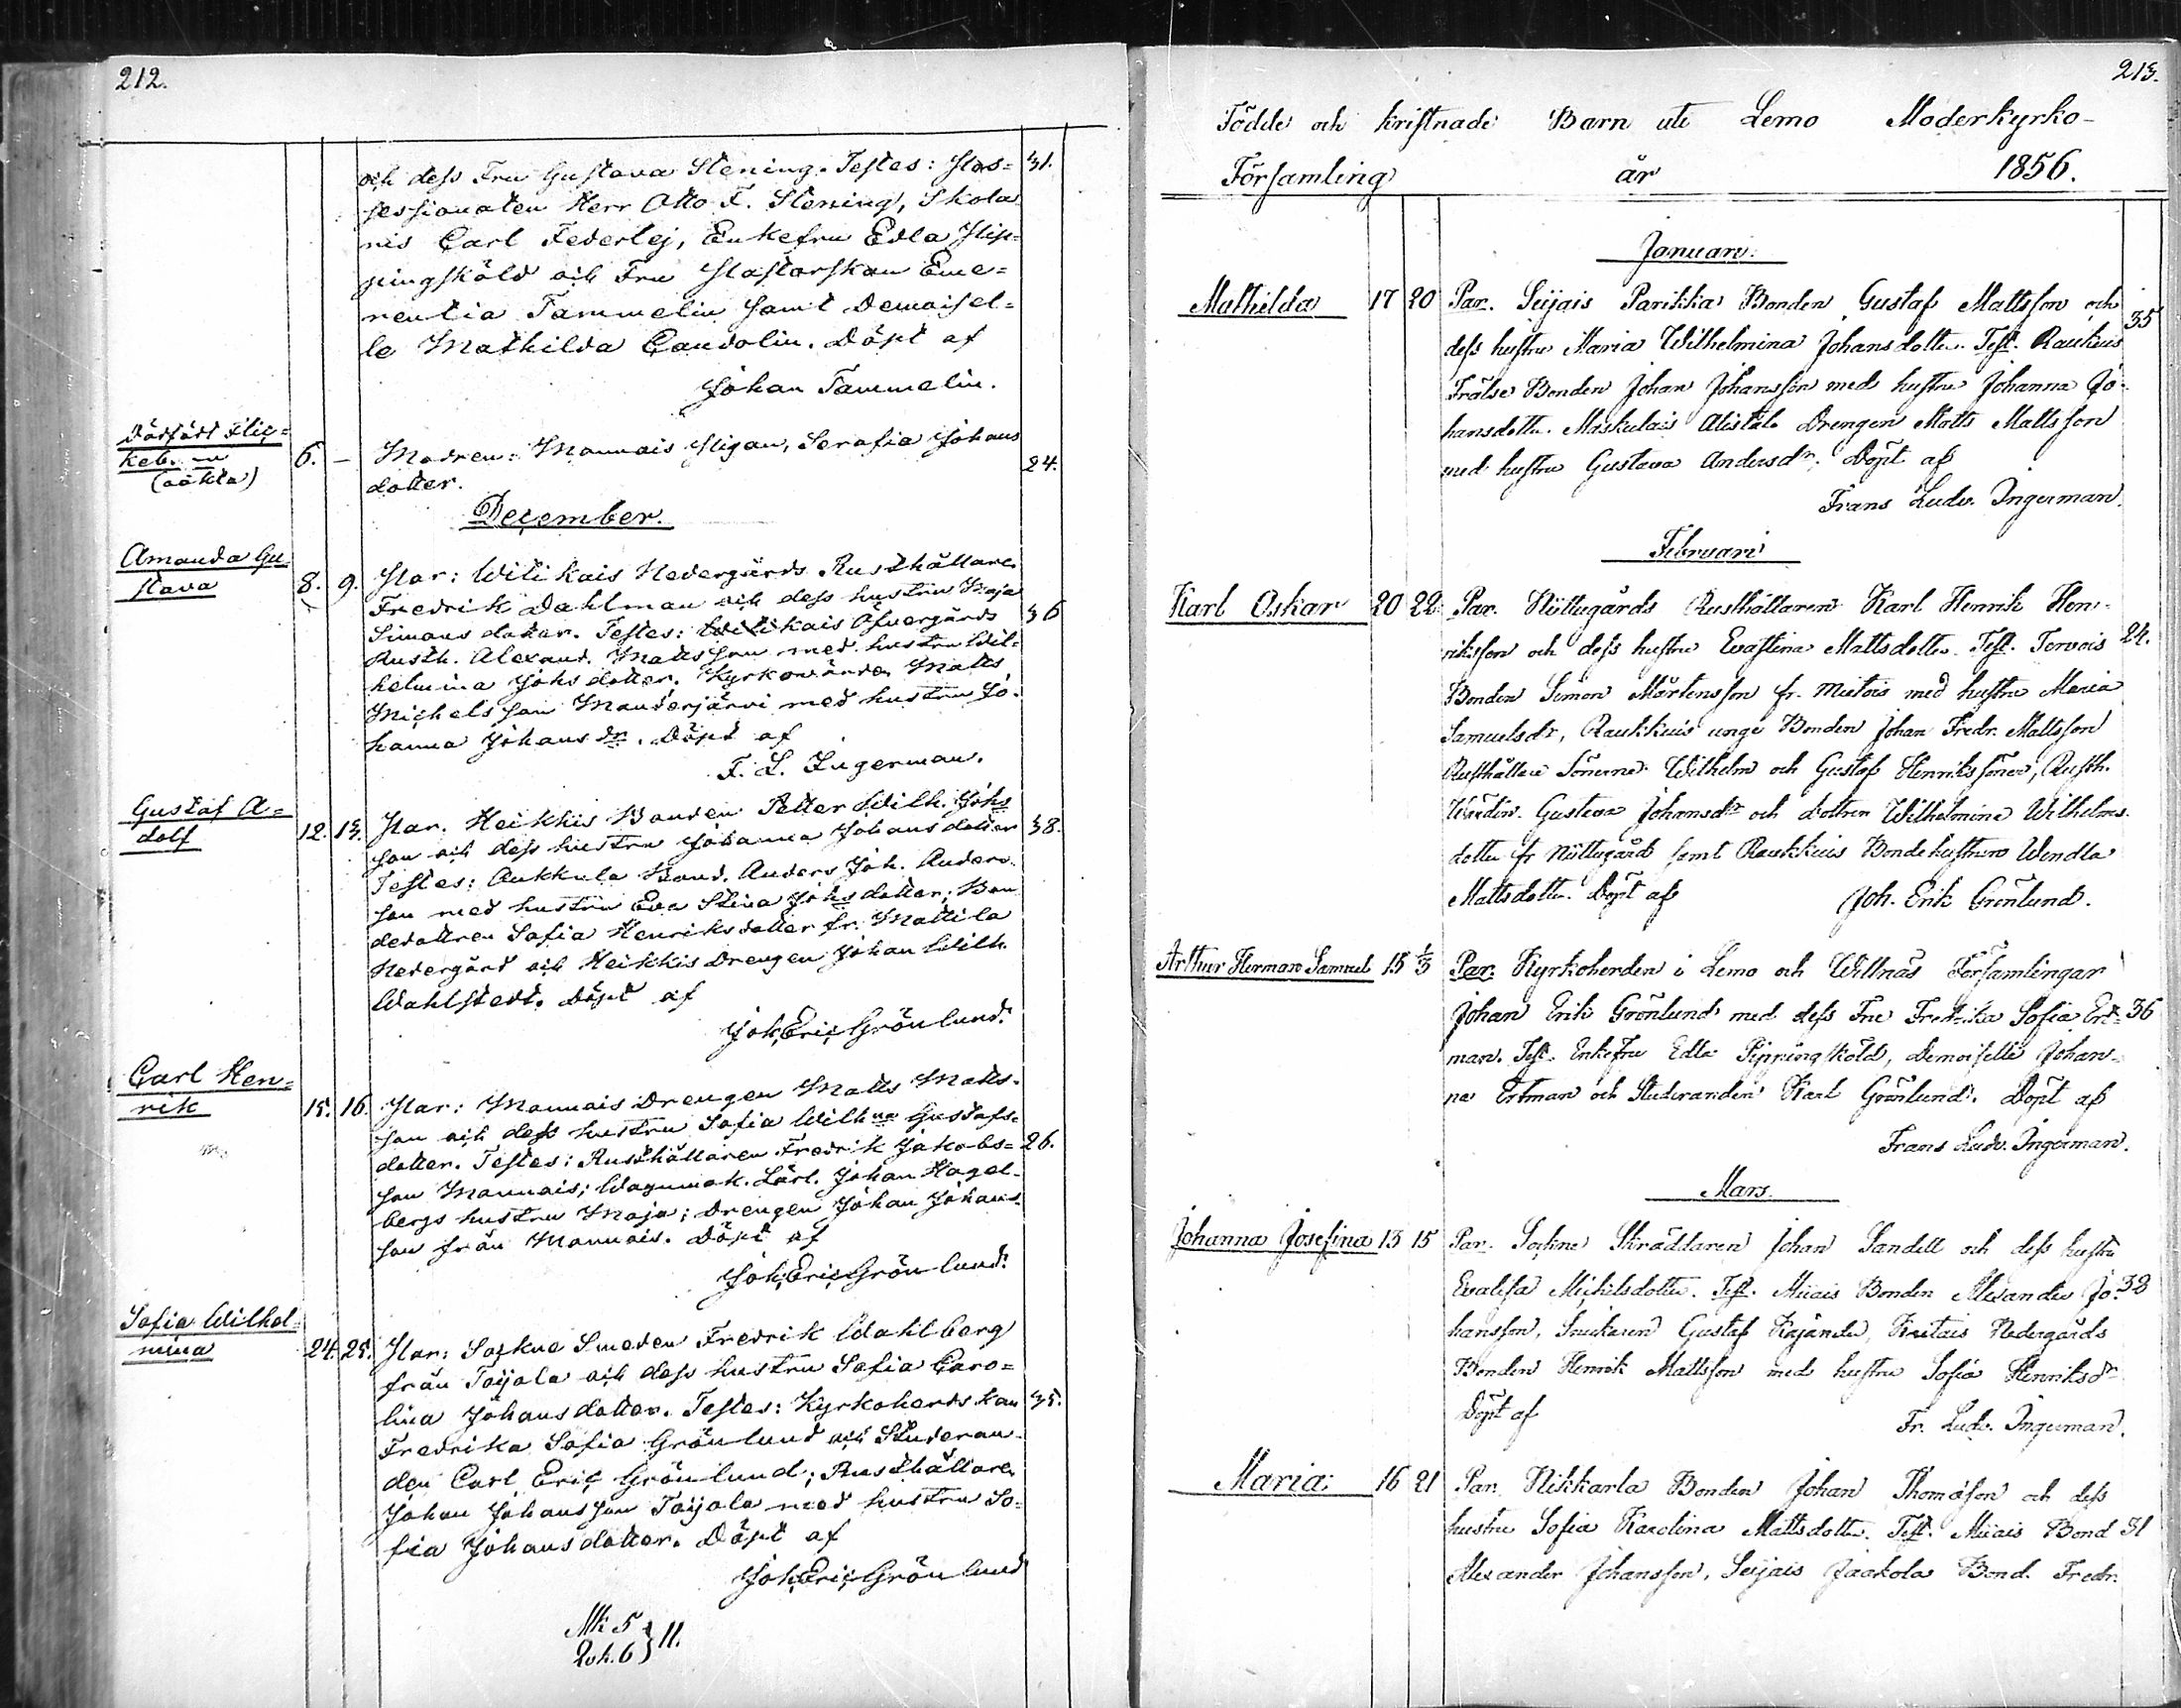 212.
och dess Fru Gustava Stening. Testes: Pos= 31.
sessionaten Herr Otto F. Stening, Skola
ris Carl Federlej, Enkefru Edla Pip=
pingsköld och Fru Pastorskan Eme=
rentia Tammelin samt Demoisel=
le Mathilda Candolin. Döpt af
Johan Tammelin.
Dödfödt Flic=
keb.
(oäkta)
6. – Modren: Mannais Pigan, Serafia Johans
dotter. 24.
December.
Amanda Gu=
stava
8. 9. Par: Witikais Nedergårds Rusthållare
Fredrik Dahlman och dess hustru Maja
Simons dotter. Testes: Witikais Öfvergårds 36
Rusth. Alexand. Matts son med hustru Wil=
helmina Johs dotter. Kyrkovärde Matts
Michelsson Mauderjärvi med hustru Jo=
hanna Johans dr. Döpt af
F. L. Ingerman.
Gustaf A=
dolf
12. 13. Par. Heikkis Bonden Petter Wilh. Johs
son och dess hustru Johanna Johans dotter 38.
Testes: Aukkula Bond. Anders Joh. Anders
son med hustru Eva Stina Johs dotter; Bon
dedottren Sofia Henriks dotter fr. Mattila
Nedergård och Heikkis Drengen Johan Wilh.
Wahlstedt. Döpt af
Joh. Eric Grönlund.
Carl Hen=
rik
15. 16. Par: Mannais Drengen Matts Matts-
son och dess hustru Sofia Wilhna Gustafs=
dotter. Testes: Rusthållaren Fredrik Jakobs= 26.
son Mannais; Wagnmak. Lärl. Johan Hagel-
bergs hustru Maja; Drengen Johan Johans-
son från Mannais. Döpt af
Joh. Eric Grönlund.
Sofia Wilhel=
mina
24. 25. Par: Sockne Smeden Fredrik Wahlberg
från Toijola och dess hustru Sofia Caro=
lina Johans dotter. Testes: Kyrkoherdskan 35.
Fredrika Sofia Grönlund och Studeran-
den Carl Eric Grönlund; Rusthållare
Johan Johansson Toijola med hustru So=
fia Johans dotter. Döpt af
Joh. Eric Grönlund
Mk 5
Qvk. 6 } 11.
213.
Födde och kristnade Barn uti Lemo Moderkyrko-
Församling år 1856.
Januari.
Mathilda 17 20 Par. Seijais Parikka Bonden Gustaf Mattsson och
dess hustru Maria Wilhelmina Johansdotter. Test. Raukkuis 35
Frälse Bonden Johan Johansson med hustru Johanna Jo-
hansdotter. Maskulais Alistalo Drengen Matts Mattsson
med hustru Gustava Andersdr. Döpt af
Frans Ludv. Ingerman.
Februari
Karl Oskar 20 22 Par. Nüttugårds Rusthållaren Karl Henrik Hen-
riksson och dess hustru Evastina Mattsdotter. Test. Tervois 24.
Bonden Simon Mårtensson fr. Mietois med hustru Maria
Samuelsdr, Raukkuis unge Bonden Johan Fredr. Mattsson
Rusthållare Sönerne Wilhelm och Gustaf Henrikssöner, Rusth.
Gustava Johansdr och dottren Wilhelmina Wilhelms-
dotter fr Nüttugård samt Raukkuis Bondehustrun Wendla
Mattsdotter. Döpt af Joh. Erik Grönlund.
Arthur Herman Samuel 15 1/3 Par. Kyrkoherden i Lemo och Willnäs Församlingar
Johan Erik Grönlund med dess Fru Fredrika Sofia Ert- 36
man. Test. Enkefru Edla Pippingsköld, Demoiselle Johan-
na Ertman och Studeranden Karl Grönlund. Döpt af
Frans Ludv. Ingerman.
Mars.
Johanna Josefina 13 15 Par. Sockne Skräddaren Johan Sandell och dess hustru
Evalisa Michelsdotter. Test. Miiais Bonden Alexander Jo- 38
hansson, Snickaren Gustaf Kajander, Keitais Nedergårds
Bonden Henrik Mattsson med hustru Sofia Henriksdr
Döpt af Fr. Ludv. Ingerman.
Maria 16 21 Par. Nikkarla Bonden Johan Thomasson och dess
hustru Sofia Karolina Mattsdotter. Test. Miiais Bond 31
Alexander Johansson, Seijais Jaakola Bond. Fredr.